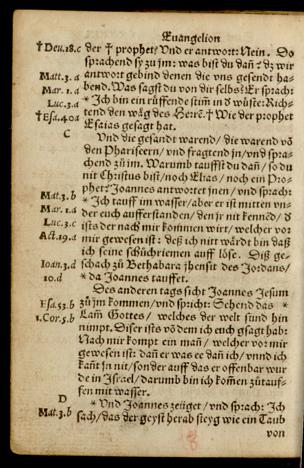 Euangelion
† Deu.18.c der † prophet? Vnd er antwort: Nein. Do
sprachend sy zů jm: was bist du dañ? dz wir
Matt.3.a antwort gebind denen die vns gesendt ha-
Mar.1.a bend. Was sagst du von dir selbs? Er sprach:
Luc.3.a * Ich bin ein růffende stim̃ in d wůste: Rich-
† Esa.40.a tend den wäg des Herrē. † Wie der prophet
Esaias gesagt hat.
C Vnd die gesandt warend/ die warend vō
den Phariseern/ vnd fragtend jn/ vnd spra-
chend zů jm. Warumb taufft du dañ/ so du
nit Christus bist/ noch Elias/ noch ein Pro-
phet? Joannes antwortet jnen/ vnd sprach:
Mat.3.b * Ich tauff im wasser/ aber er ist mitten vn-
Mar.1.a der euch aufferstanden/ den jr nit kennēd/ d
Luc.3.c ists der nach mir kommen wirt/ welcher vor
Act.19.a mir gewesen ist: deß ich nitt wärdt bin daß
ich seine schůchriemen auff löse. Diß ge-
Ioan.3.d schach zů Bethabara jhensit des Jordans/
10.d * da Joannes tauffet.
Des anderen tags sicht Joannes Jesum
Esa.53.b zů jm kommen/ vnd spricht: Sehend das *
1.Cor.5.b Lam̃ Gottes/ welches der welt sünd hin
nimpt. Diser ists vō dem ich euch gsagt hab:
Nach mir kompt ein mañ/ welcher vor mir
gewesen ist: dañ er was ee dañ ich/ vnnd ich
kañt jn nit/ sonder auff das er offenbar wur
de in Israel/ darumb bin ich kom̃en zůtauf-
fen mit wasser.
D * Vnd Joannes zeüget/ vnd sprach: Ich
Mat.3.b sach/ das der geyst herab steyg wie ein Taub
von